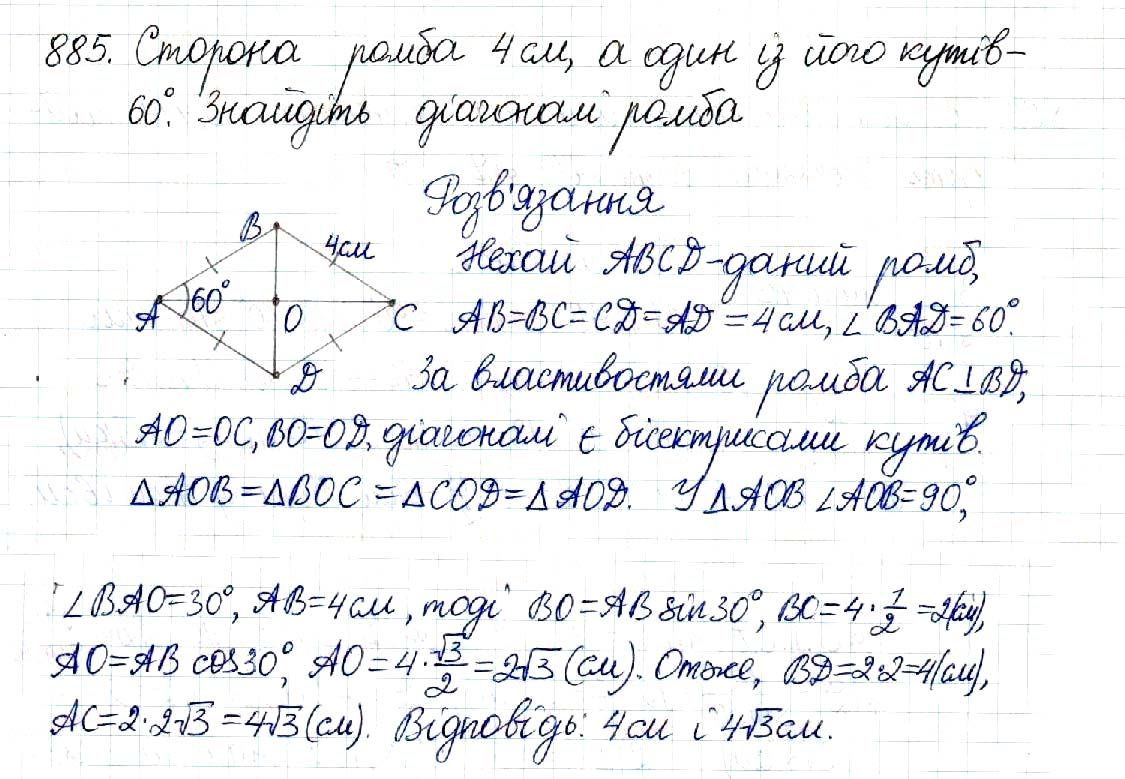 885. Сторона ромба 4 см, а один із його кутів-
60°. Знайдіть діагоналі ромба
Розв'язання
B
4см
Нехай ABCD-даний ромб,
A 60° O C
AB=BC=CD=AD=4см, ∠BAD=60°.
D
За властивостями ромба AC⊥BD,
AO=OC, BO=OD, діагоналі є бісектрисами кутів.
△AOB=△BOC=△COD=△AOD. У △AOB ∠AOB=90°,
∠BAO=30°, AB=4см, тоді BO=AB sin30°, BO=4·1/2=2(см),
AO=AB cos30°, AO=4·√3/2=2√3(см). Отже, BD=2·2=4(см),
AC=2·2√3=4√3(см). Відповідь: 4см і 4√3см.